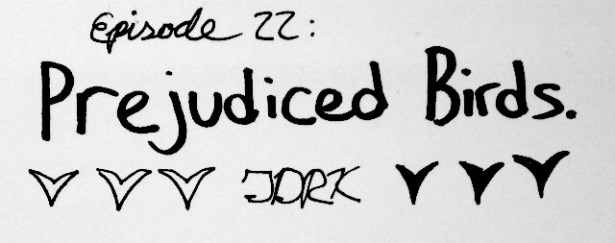 Episode 22:
Prejudiced Birds.
JDRK